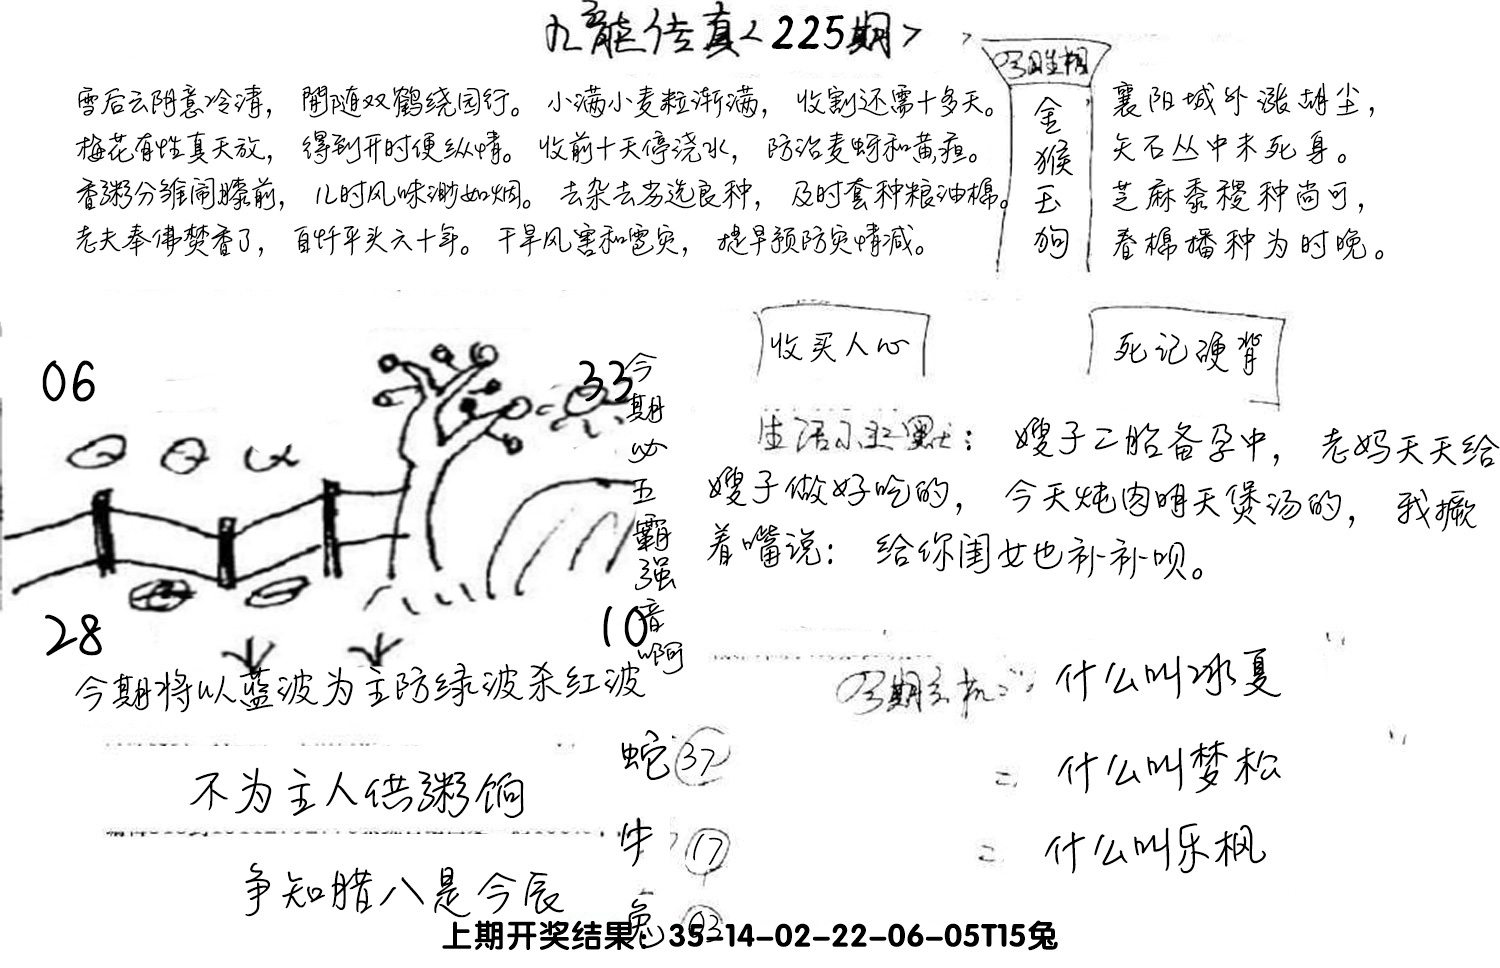 九龙传真<225期>
雪后云阴意冷清，閒随双鹤绕园行。
梅花有性真天放，得到开时便纵情。
香粥分虽闹膝前，儿时风味渺如烟。
老夫奉佛焚香了，自忖平头六十年。
小满小麦粒渐满，收割还需十多天。
收前十天停浇水，防治麦蚜和黄疸。
去杂去劣选良种，及时套种粮油棉。
干旱风害和雹灾，提早预防灾情减。
金猴玉狗
襄阳城外涨胡尘，
矢石丛中未死身。
芝麻黍稷种尚可，
春棉播种为时晚。
06
33
28
10
今期必五霸强音啊
收买人心
死记硬背
生活小幽默：嫂子二胎备孕中，老妈天天给
嫂子做好吃的，今天炖肉明天煲汤的，我撅
着嘴说：给你闺女也补补呗。
今期将以蓝波为主防绿波杀红波
不为主人供粥饷
争知腊八是今辰
蛇 37
牛 17
兔 03
今期玄机：什么叫冰夏
= 什么叫梦松
= 什么叫乐枫
上期开奖结果：35-14-02-22-06-05T15兔